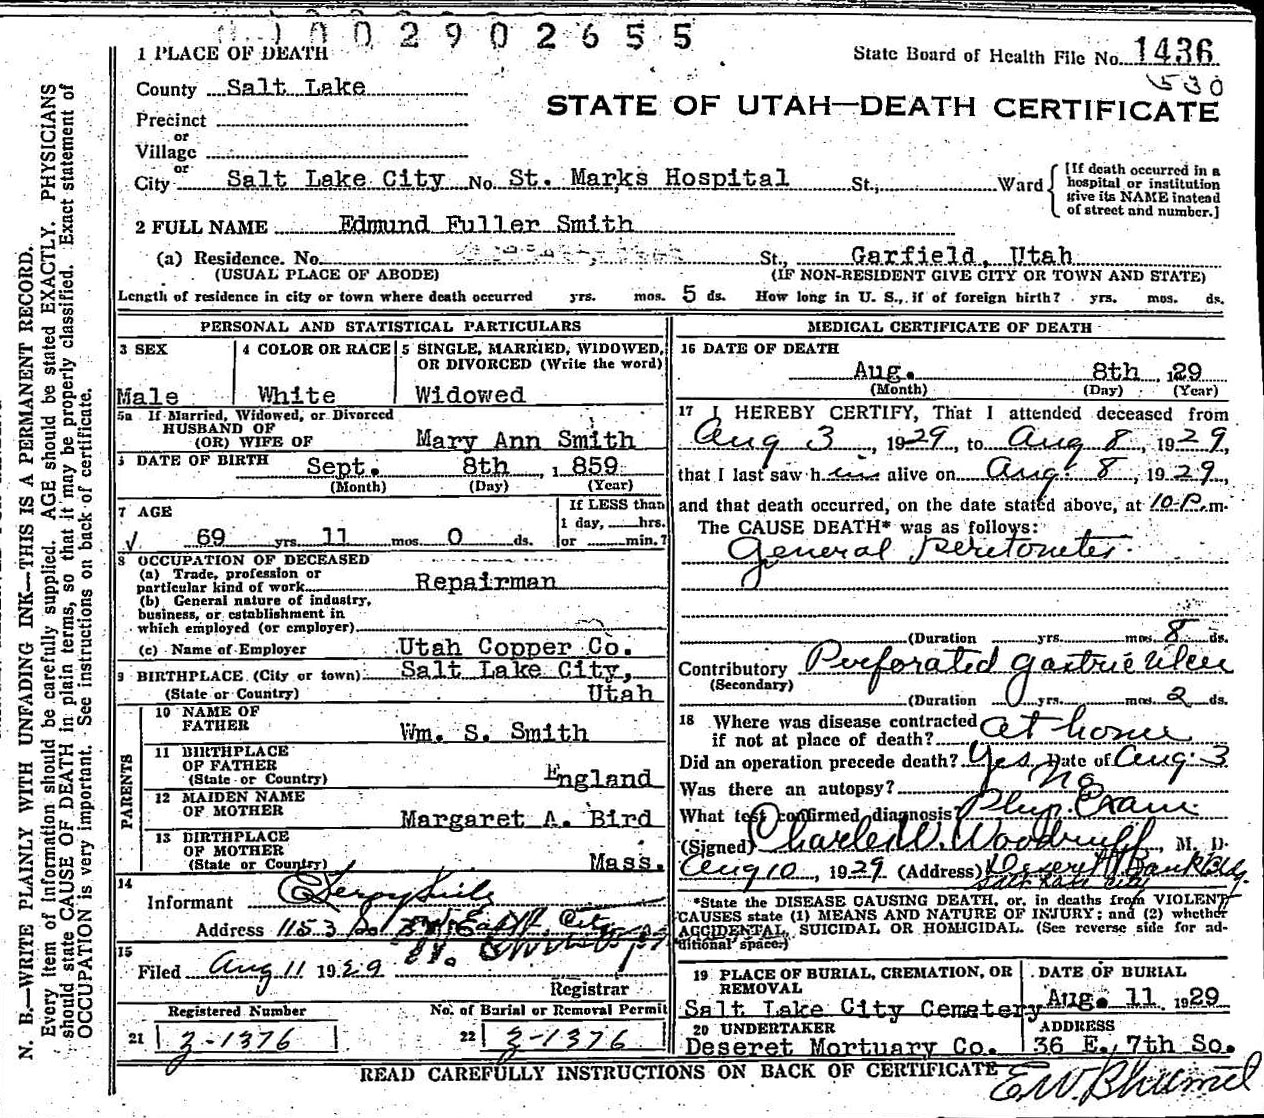 0 0 0 2 9 0 2 6 5 5
1 PLACE OF DEATH
State Board of Health File No. 1436
530
County Salt Lake
STATE OF UTAH—DEATH CERTIFICATE
Precinct
or
Village
or
City Salt Lake City No. St. Marks Hospital St., Ward
[If death occurred in a hospital or institution give its NAME instead of street and number.]
2 FULL NAME Edmund Fuller Smith
(a) Residence. No. St., Garfield, Utah
(USUAL PLACE OF ABODE) (IF NON-RESIDENT GIVE CITY OR TOWN AND STATE)
Length of residence in city or town where death occurred yrs. mos. 5 ds. How long in U. S., if of foreign birth? yrs. mos. ds.
PERSONAL AND STATISTICAL PARTICULARS
3 SEX
Male
4 COLOR OR RACE
White
5 SINGLE, MARRIED, WIDOWED, OR DIVORCED (Write the word)
Widowed
5a If Married, Widowed, or Divorced
HUSBAND OF
(OR) WIFE OF Mary Ann Smith
DATE OF BIRTH Sept. 8th 1859
(Month) (Day) (Year)
7 AGE
√ 69 yrs. 11 mos. 0 ds.
If LESS than
1 day, hrs.
or min.?
8 OCCUPATION OF DECEASED
(a) Trade, profession or
particular kind of work Repairman
(b) General nature of industry,
business, or establishment in
which employed (or employer)
(c) Name of Employer Utah Copper Co.
9 BIRTHPLACE (City or town) Salt Lake City,
(State or Country) Utah
PARENTS
10 NAME OF
FATHER Wm. S. Smith
11 BIRTHPLACE
OF FATHER
(State or Country) England
12 MAIDEN NAME
OF MOTHER Margaret A. Bird
13 BIRTHPLACE
OF MOTHER
(State or Country) Mass.
14
Informant
Address 1153
15
Filed Aug 11 1929
Registrar
Registered Number
21 2-1376
No. of Burial or Removal Permit
22 2-1376
MEDICAL CERTIFICATE OF DEATH
16 DATE OF DEATH
Aug. 8th 1929
(Month) (Day) (Year)
17 I HEREBY CERTIFY, That I attended deceased from
Aug 3, 1929, to Aug 8, 1929,
that I last saw him alive on Aug. 8, 1929,
and that death occurred, on the date stated above, at 10 P.m.
The CAUSE DEATH* was as follows:
General Peritonetes
(Duration yrs. mos. 8 ds.
Contributory Perforated gastric ulcer
(Secondary)
(Duration 0 yrs. mos. 2 ds.
18 Where was disease contracted
if not at place of death? at home
Did an operation precede death? Yes Date of Aug. 3
Was there an autopsy? No
What test confirmed diagnosis Phys. Exam
(Signed) Charles W. Woodruff, M. D.
Aug 10, 1929 (Address) Deseret Bank Bldg.
Salt Lake City
*State the DISEASE CAUSING DEATH, or, in deaths from VIOLENT
CAUSES state (1) MEANS AND NATURE OF INJURY; and (2) whether
ACCIDENTAL, SUICIDAL OR HOMICIDAL. (See reverse side for ad-
ditional space.)
19 PLACE OF BURIAL, CREMATION, OR
REMOVAL
Salt Lake City Cemetery
DATE OF BURIAL
Aug. 11 1929
20 UNDERTAKER
Deseret Mortuary Co.
ADDRESS
36 E. 7th So.
READ CAREFULLY INSTRUCTIONS ON BACK OF CERTIFICATE
N. B.—WRITE PLAINLY WITH UNFADING INK—THIS IS A PERMANENT RECORD.
Every item of information should be carefully supplied. AGE should be stated EXACTLY. PHYSICIANS
should state CAUSE OF DEATH in plain terms, so that it may be properly classified. Exact statement of
OCCUPATION is very important. See instructions on back of certificate.